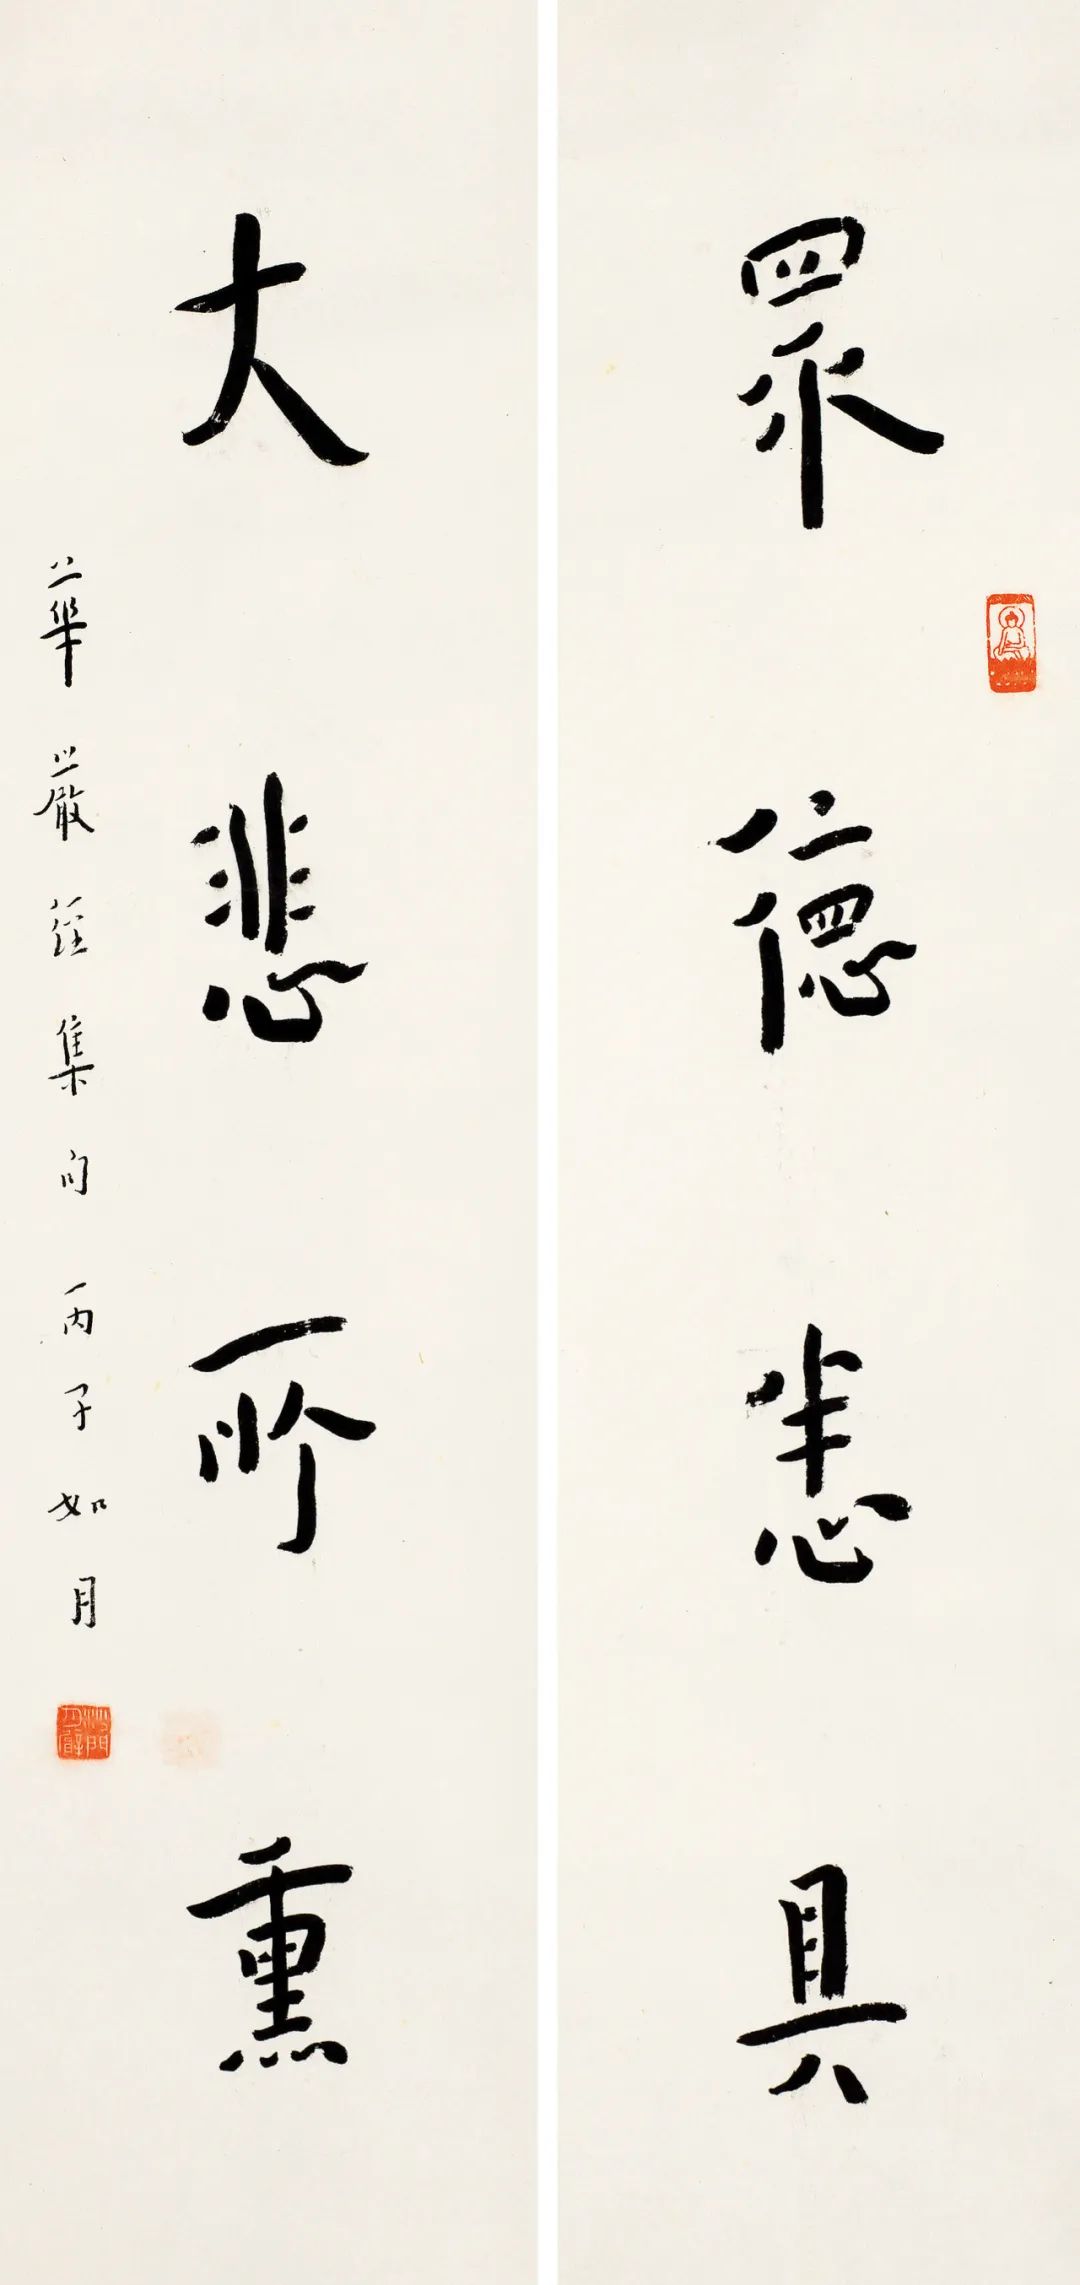 眾德悉具
大悲所熏
華嚴經集句 丙子如月
沙門月臂